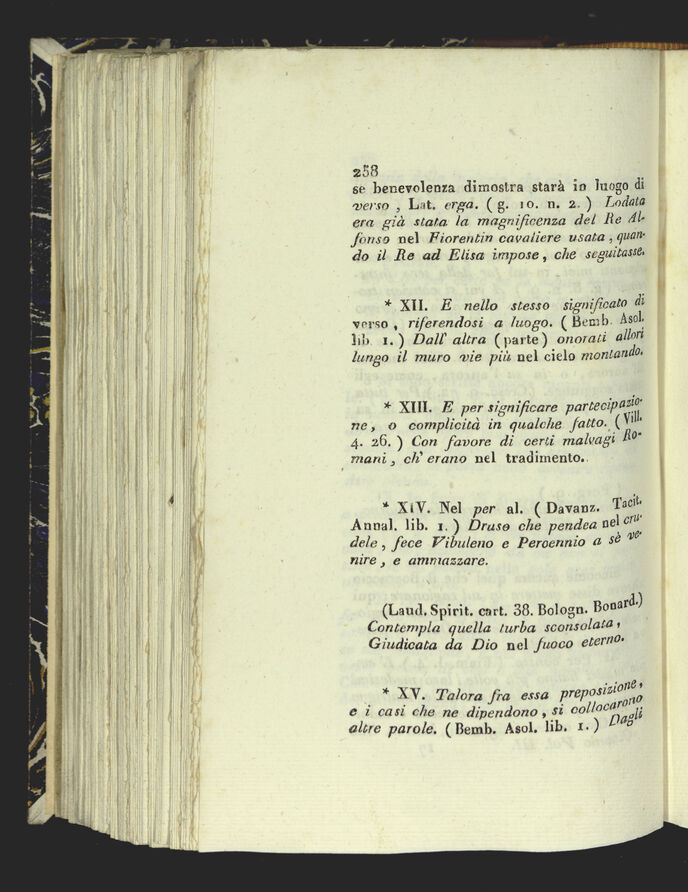 258
se benevolenza dimostra starà in luogo di
verso , Lat. erga. ( g. 10. n. 2. ) Lodata
era già stata la magnificenza del Re Al-
fonso nel Fiorentin cavaliere usata , quan-
do il Re ad Elisa impose , che seguitasse.
* XII. E nello stesso significato di
verso , riferendosi a luogo. ( Bemb. Asol.
lib. 1. ) Dall' altra ( parte ) onorati allori
lungo il muro vie più nel cielo montando.
* XIII. E per significare partecipazio-
ne , o complicità in qualche fatto. ( Vill.
4. 26. ) Con favore di certi malvagi Ro-
mani , ch' erano nel tradimento.
* XIV. Nel per al. ( Davanz. Tacit.
Annal. lib. 1. ) Druso che pendea nel cru-
dele , fece Vibuleno e Percennio a sè ve-
nire , e ammazzare.
(Laud. Spirit. cart. 38. Bologn. Bonard.)
Contempla quella turba sconsolata ,
Giudicata da Dio nel fuoco eterno.
* XV. Talora fra essa preposizione ,
e i casi che ne dipendono , si collocarono
altre parole. ( Bemb. Asol. lib. 1. ) Dagli